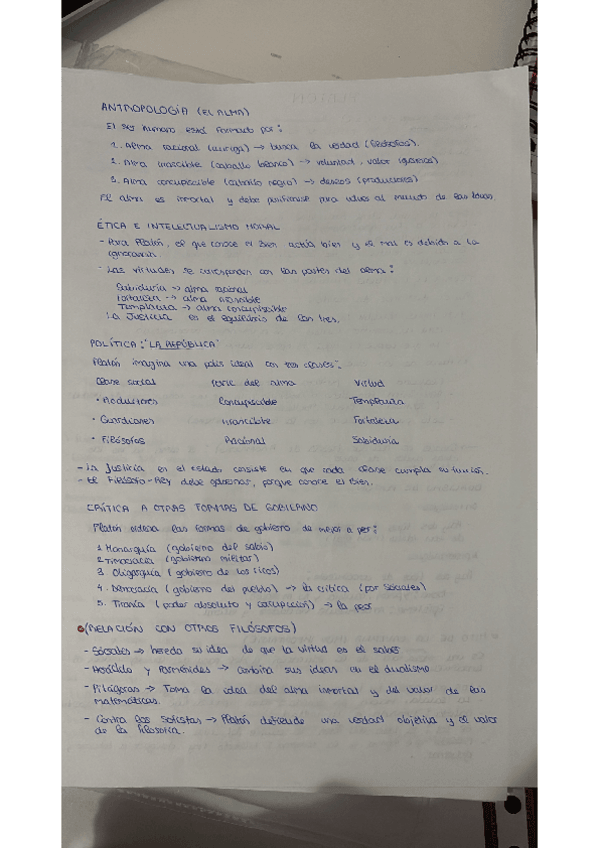 ANTROPOLOGÍA (EL ALMA)
El ser humano está formado por:
1. Alma racional (auriga) -> busca la verdad (filósofos).
2. Alma irascible (caballo blanco) -> voluntad, valor (guerreros)
3. Alma concupiscible (caballo negro) -> deseos (productores)
El alma es inmortal y debe purificarse para volver al mundo de las Ideas.
ÉTICA E INTELECTUALISMO MORAL
- Para Platón, el que conoce el Bien actúa bien y el mal es debido a la
ignorancia.
- Las virtudes se corresponden con las partes del alma:
Sabiduría -> alma racional
Fortaleza -> alma irascible
Templanza -> alma concupiscible
La Justicia es el equilibrio de las tres.
POLÍTICA: "LA REPÚBLICA"
Platón imagina una polis ideal con tres clases:
Clase social Parte del alma Virtud
· Productores Concupiscible Templanza
· Guardianes Irascible Fortaleza
· Filósofos Racional Sabiduría
- La Justicia en el estado consiste en que cada clase cumpla su función.
- El Filósofo-Rey debe gobernar, porque conoce el Bien.
CRÍTICA A OTRAS FORMAS DE GOBIERNO
Platón ordena las formas de gobierno de mejor a peor:
1. Monarquía (gobierno del sabio)
2. Timocracia (gobierno militar)
3. Oligarquía (gobierno de los ricos)
4. Democracia (gobierno del pueblo) -> la critica (por Sócrates)
5. Tiranía (poder absoluto y corrupción) -> la peor
(RELACIÓN CON OTROS FILÓSOFOS)
- Sócrates -> hereda su idea de que la virtud es el saber
- Heráclito y Parménides -> combina sus ideas en el dualismo
- Pitágoras -> Toma la idea del alma inmortal y del valor de las
matemáticas.
- Contra los Sofistas -> Platón defiende una verdad objetiva y el valor
de la filosofía.